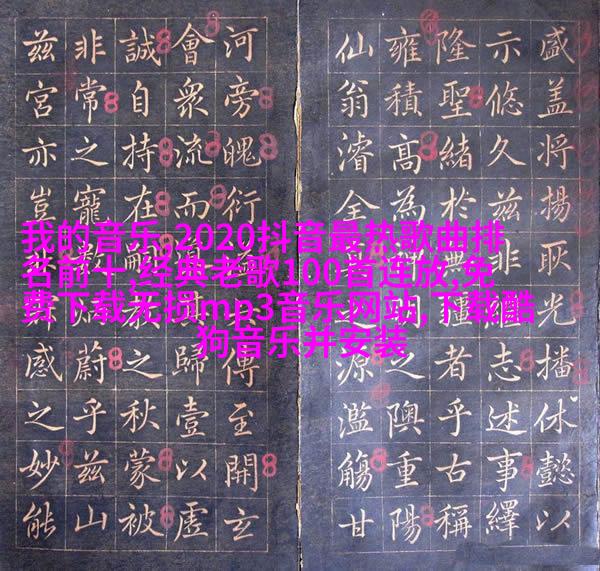 我的音乐,2020抖音最热歌曲排
名前十,经典老歌100首连放,免
费下载无损mp3音乐网站,下载酷
狗音乐并安装
盛盖将揚耿光播休懿以
示悠久兹非志述事繹
隆聖緒於者乎古稱
雍積高為之隩重陽
仙翁濬全源濫觴甘
河旁魄衍傳至開玄
會衆流而歸壹以虛
誠自持在嗣教之秋蒙被
非常之寵蔚乎兹山
兹宮亦豈感之妙能